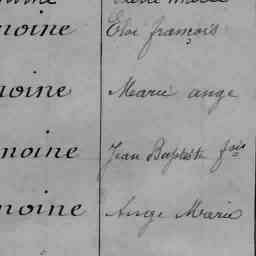 moine Eloi françois
moine Marie ange
moine Jean Baptiste fois
moine Ange Marie